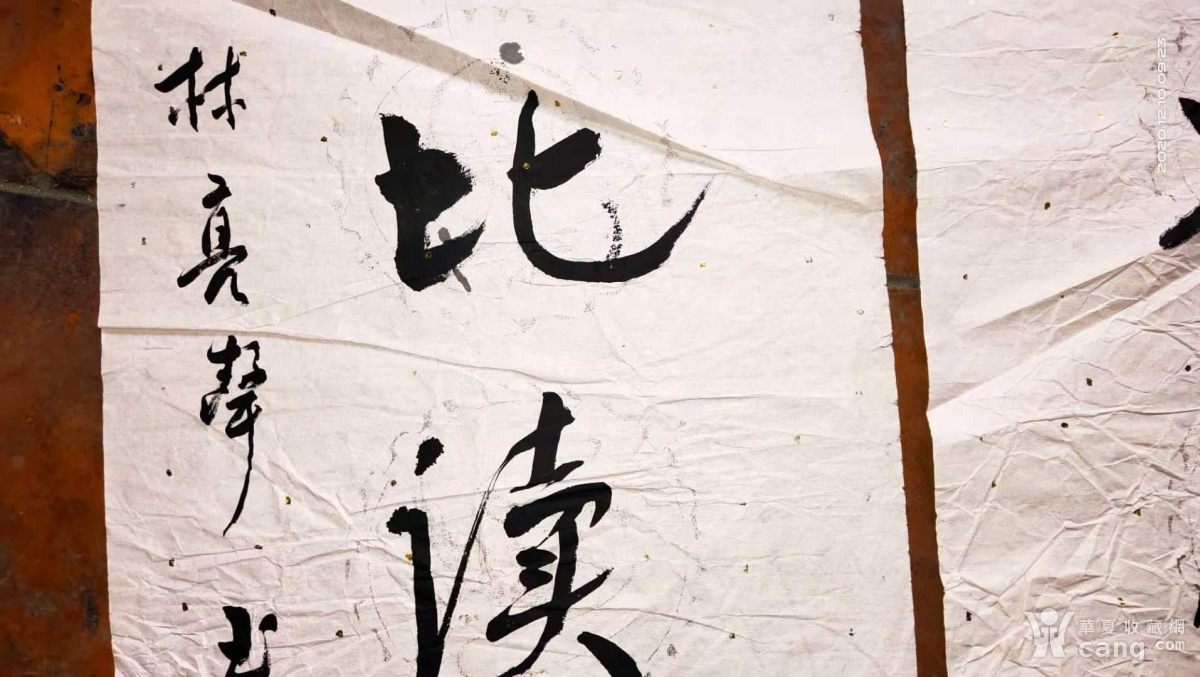 比读
林亮聲
2020.12.10 09:23
華夏收藏網
cang.com